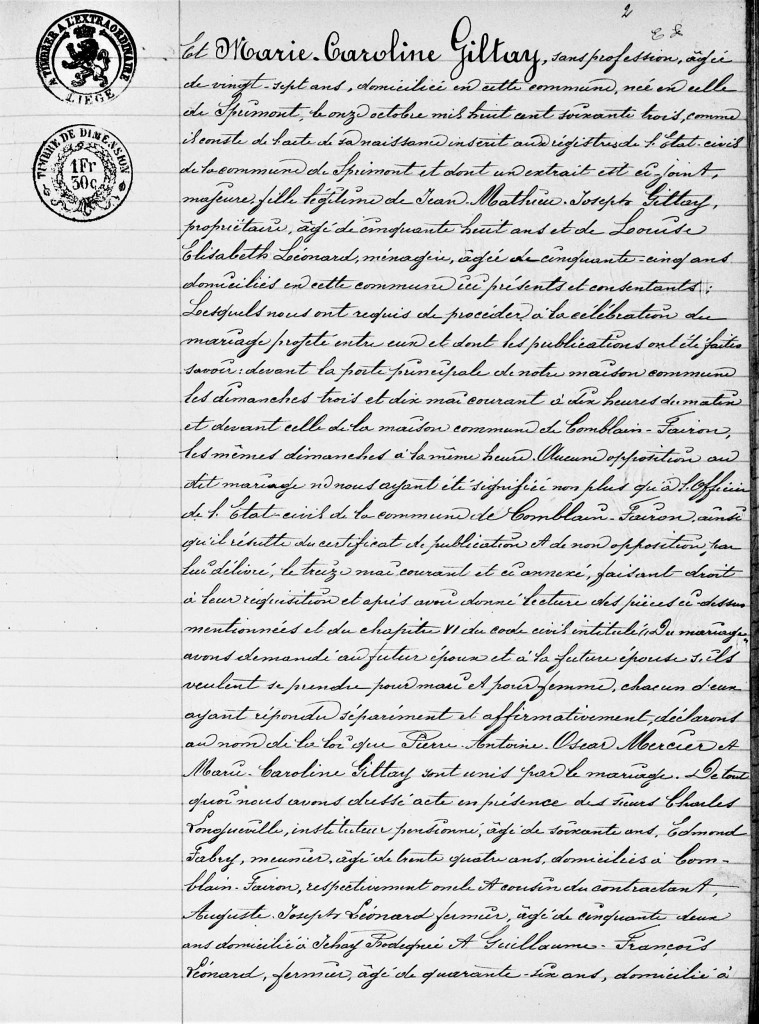 2
A TIMBRER A L'EXTRAORDINAIRE
LIEGE
TIMBRE DE DIMENSION
1Fr
30c
Et Marie-Caroline Giltay, sans profession, âgée
de vingt-sept ans, domiciliée en cette commune, née en celle
de Sprimont, le onze octobre mil huit cent soixante trois, comme
il conste de l'acte de sa naissance inscrit aux régistres de l'Etat-civil
de la commune de Sprimont et dont un extrait est ci-joint,
majeure, fille légitime de Jean-Mathieu-Joseph Giltay,
propriétaire, âgé de cinquante huit ans et de Louise
Elisabeth Léonard, ménagère, âgée de cinquante-cinq ans
domiciliés en cette commune ici présents et consentants;
Lesquels nous ont requis de procéder à la célébration du
mariage projeté entre eux et dont les publications ont été faites
savoir: devant la porte principale de notre maison commune
les dimanches trois et dix mai courant à dix heures du matin
et devant celle de la maison commune de Comblain-Fairon,
les mêmes dimanches à la même heure. Aucune opposition au
dit mariage ne nous ayant été signifiée non plus qu'à l'Officier
de l'Etat-civil de la commune de Comblain-Fairon, ainsi
qu'il résulte du certificat de publication et de non opposition, par
lui délivré, le treize mai courant et ci annexé, faisant droit
à leur réquisition et après avoir donné lecture des pièces ci-dessus
mentionnées et du chapitre VI du code civil intitulé "Du mariage"
avons demandé au futur époux et à la future épouse s'ils
veulent se prendre pour mari et pour femme, chacun d'eux
ayant répondu séparément et affirmativement, déclarons
au nom de la loi que Pierre-Antoine-Oscar Mercier et
Marie-Caroline Giltay sont unis par le mariage. De tout
quoi nous avons dressé acte en présence des sieurs Charles
Longueville, instituteur pensionné, âgé de soixante ans, Edmond
Fabry, meunier, âgé de trente quatre ans, domiciliés à Com-
blain-Fairon, respectivement oncle et cousin du contractant,
Auguste-Joseph Léonard fermier, âgé de cinquante deux
ans domicilié à Jehay Bodegnée et Guillaume-François
Léonard, fermier, âgé de quarante-six ans, domicilié à